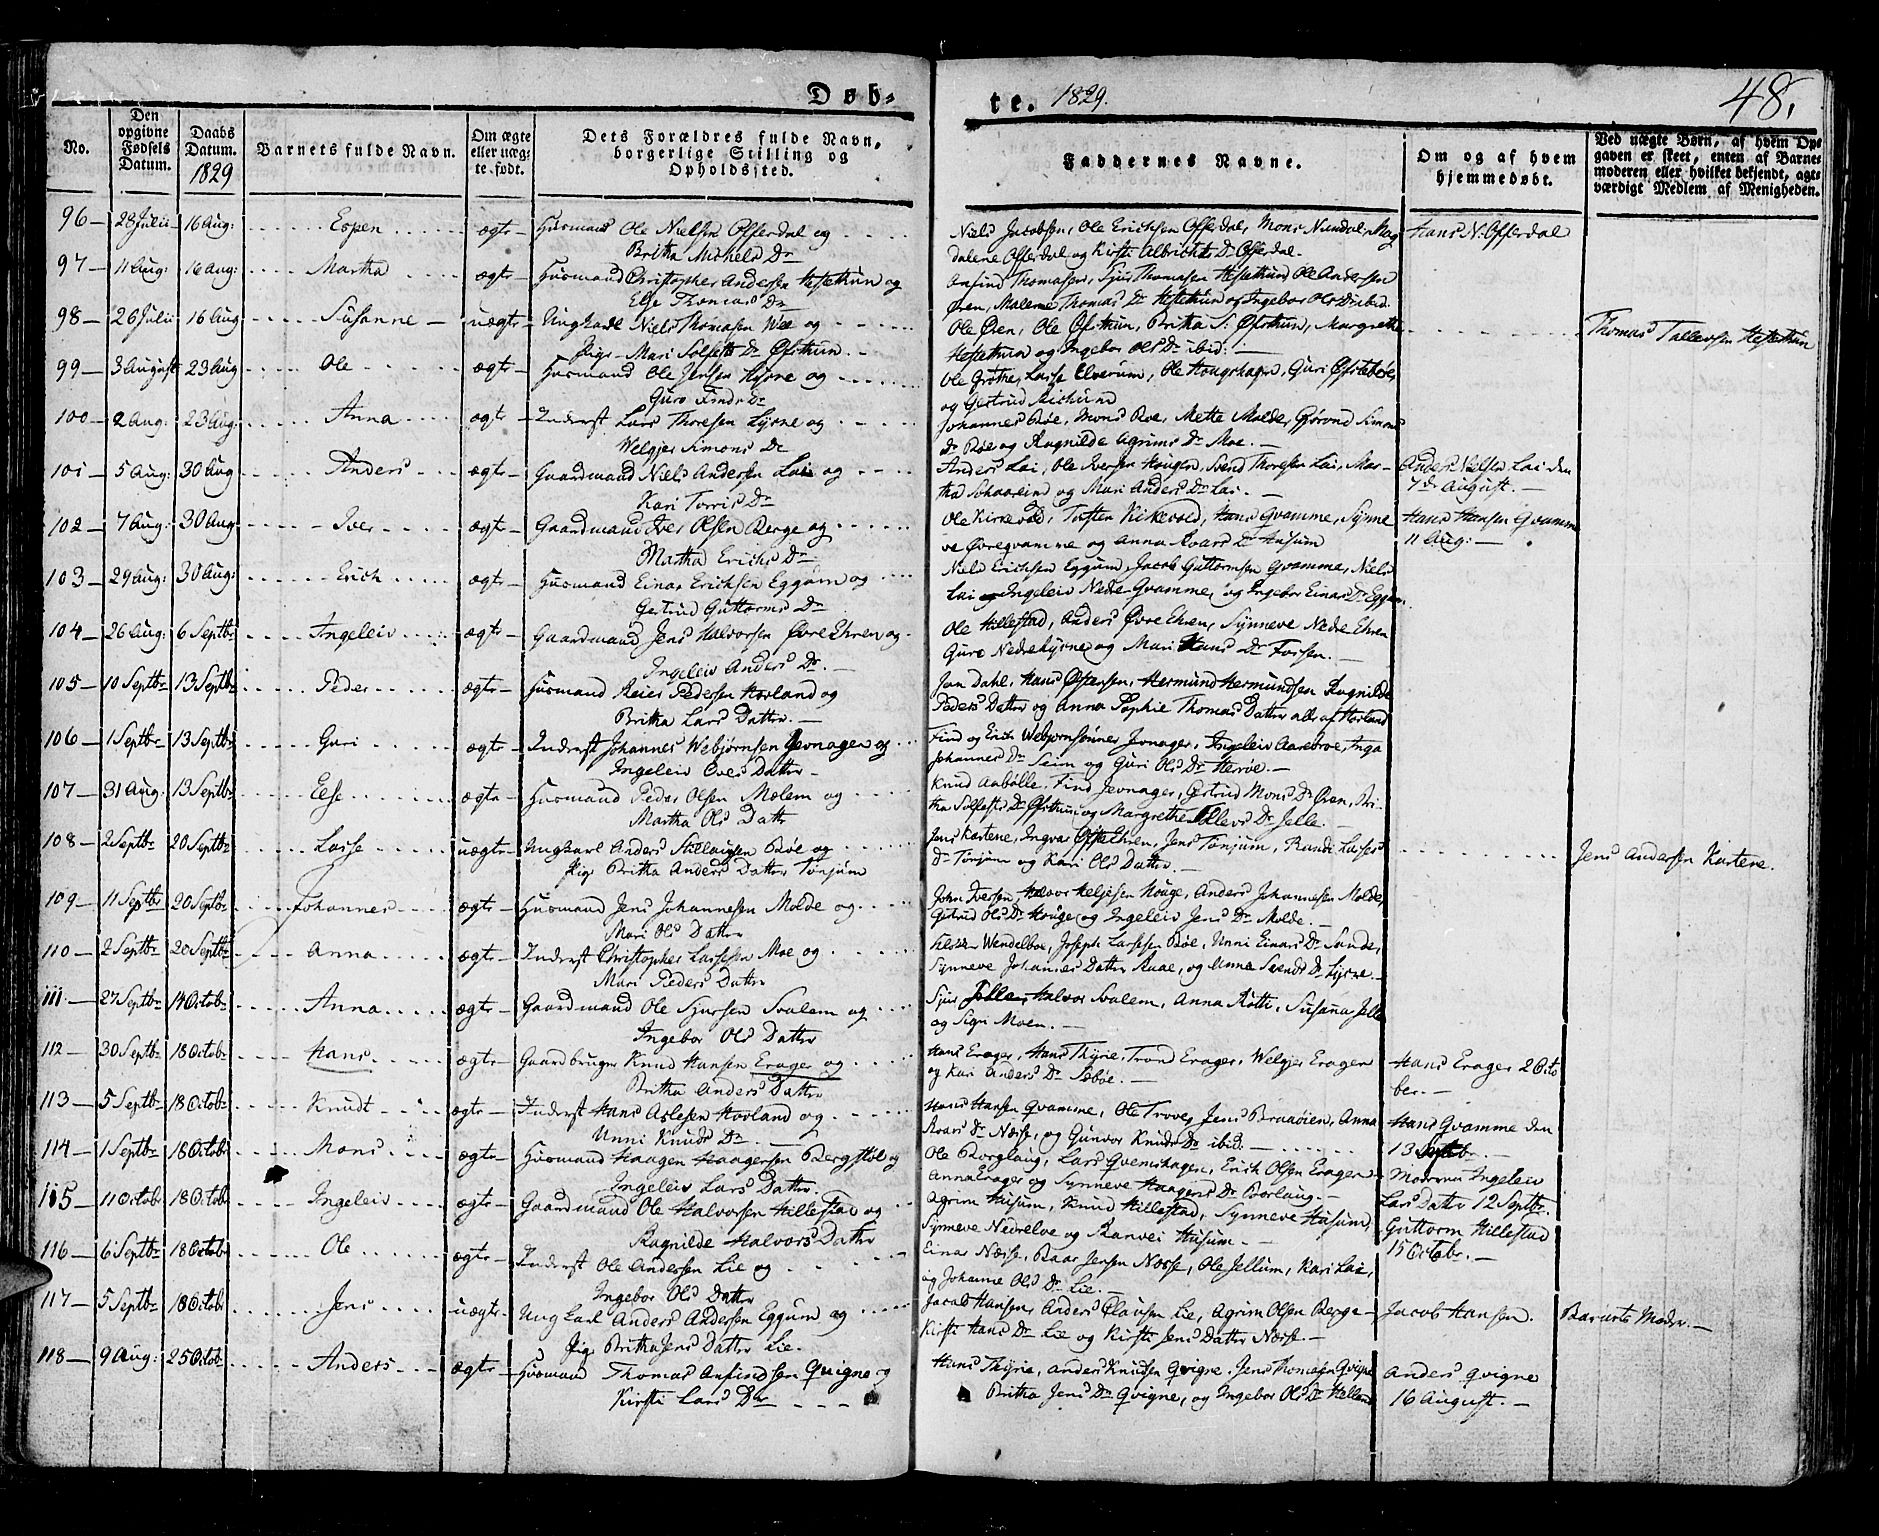 Døb-
te. 1829.
48.
No.
Den opgivne Fødsels Datum.
Daabs Datum. 1829
Barnets fulde Navn.
Om ægte eller uæg- te født.
Dets Forældres fulde Navn, borgerlige Stilling og Opholdssted.
Faddernes Navne.
Om og af hvem hjemmedøbt.
Ved uægte Børn, af hvem Op- gaven er skeet, enten af Barne- moderen eller hvilket bekjendt, agt- værdigt Medlem af Menigheden.
96 28 Julii 16 Aug: Espen ægte Huusmand Ole Nielsen Offerdal og
Britha Michels Dr
Niels Jacobsen, Ole Erichsen Offerdal, Mons Nundal, Mag
dalene Offerdal og Kirsti Albrichts Dr Offerdal
Hans N. Offerdal
97 11 Aug: 16 Aug: Martha ægte Huusmand Christopher Andersen Hestethun og
Else Thomas Dr
Anfind Thomasen, Sjur Thomasen Hestethun, Ole Andersen
Øren, Malene Thomas Dr Hestethun og Ingebor Ols Dr ibid.
98 26 Julii 16 Aug Susanne uægte Ungkarl Niels Thomasen Wee og
Pige Mari Solfests Dr Øfsthun.
Ole Øren, Ole Øfsthun, Britha S: Øfsthun, Margrethe
Hestethun og Ingebor Ols Dr ibid:
Thomas Tollevsen Hestethun
99 3 August 23 Aug Ole ægte Huusmand Ole Jensen Lysne og
Guro Finds Dr
Ole Grøthe, Lasse Elverum, Ole Hougshagen, Guri Øfstebøe,
og Gertrud
100 2 Aug: 23 Aug Anna ægte Inderst Lars Thoresen Lysne og
Welgjer Simons Dr
Johannes Bøe, Mons Boe, Mette Molde, Gjørond Simons
Dr Bøe og Ragnilde Agrims Dr Moe.
101 5 Aug: 30 Aug Anders ægte Gaardmand Niels Andersen Lai og
Kari Torris Dr
Anders Lai, Ole Iversen Hougen, Svend Thoresen Lai, Mar-
tha Schaareind og Mari Anders Dr Lai.
Anders Nielsen Lai den
7de August.
102 7 Aug: 30 Aug Iver ægte Gaardmand Iver Olsen Berge og
Martha Erichs Dr
Ole Kirkevold, Torsten Kirkevold, Hans Qvamme, Synne
ve Øvreqvamme og Anna Roars Dr Husum
Hans Hansen Qvamme
11 Aug:
103 29 Aug: 30 Aug: Erich ægte Huusmand Einar Erichsen Eggum og
Gertrud Guttorms Dr
Niels Erichsen Eggum, Jacob Guttormsen Qvamme, Niels
Lai og Ingeleiv Nedre Qvamme, og Ingebor Einars Dr Eggum.
104 26 Aug: 6 Septbr Ingeleiv ægte Gaardmand Jens Halvorsen Øvre Ehren og
Ingeleiv Anders Dr.
Ole Hillestad, Anders Øvre Ehren, Synneve Nedre Ehren
Guro Nedrelysne og Mari Hans Dr Forsen.
105 10 Septbr 13 Septbr Peder ægte Huusmand Reier Pedersen Hovland og
Britha Lars Datter.
Jan Dahl, Hans Østensen, Hermund Hermundsen Ragnilde
Peders Datter og Anna Sophie Thomas Datter alle af Hovland
106 1 Septbr 13 Septbr Guri ægte Inderst Johannes Webjørnsen Jevnager og
Ingeleiv Oves Datter
Find og Erich Webjørnsønner Jevnager, Ingeleiv Aarebroe, Inga
Johannes Dr Seim og Guri Ols Dr Herrøe.
107 31 Aug: 13 Septbr Else ægte Huusmand Peder Olsen Molem og
Martha Ols Dattr
Knud Aabølle, Find Jevnager, Gertrud Mons Dr Øren, Bri-
tha Solfests Dr Øfsthun og Margrethe Tollevs Dr Jelle.
108 2 Septbr 20 Septbr Lasse uægte Ungkarl Anders Bøe og
Pige Britha Anders Datter Tønjum
Jens Kartene, Ingvar Ofte Ehren, Jens Tønjum, Randi Lasses
Dr Tønjum og Kari Ols Datter.
Jens Andersen Kartene.
109 11 Septbr 20 Septbr Johannes ægte Huusmand Jens Johannesen Molde og
Mari Ols Datter
John Iversen, Halvor Heljesen Houge, Anders Johannesen Molde,
Gertrud Ols Dr Houge og Ingeleiv Jens Dr Molde.
110 2 Septbr 20 Septbr Anna ægte Inderst Christopher Lassesen Moe og
Mari Peders Datter
Wendelboe, Joseph Larsesen Bøe, Unni Einars Dr Sande,
Synneve Johannes Datter Auae, og Anna Svends Dr Lysne.
111 27 Septbr 14 Octobr Anna ægte Gaardmand Ole Sjursen Svalem og
Ingebor Ols Datter
Sjur Jelle, Halvor Svalem, Anna Røtti, Susana Jelle
og Sigri Moen.
112 30 Septbr 18 Octobr Hans ægte Gaardbruger Knud Hansen Erager og
Britha Anders Datter
Hans Erager, Hans Thyrie, Trond Erager, Welgjer Erager
og Kari Anders Dr Sæbøe.
Hans Erager 2 Octo
ber.
113 5 Septbr 18 Octobr Knudt ægte Inderst Hans Aslesen Hovland og
Unni Knuds Dr
Hans Hansen Qvamme, Ole Trove, Jens Braaøien, Anna
Roars Dr Næsse, og Gunvor Knuds Dr ibid:
Hans Qvamme den
13 Septbr.
114 1 Septbr 18 Octobr Mons ægte Huusmand Haagen Haagensen Bergstøl og
Ingeleiv Lars Datter.
Ole Borglaug, Lars Qvemshagen, Erich Olsen Erager
Anna Erager og Synneve Haagens Dr Borlaug.
Moderen Ingeleiv
Lars Datter 12 Septbr.
115 11 Octobr 18 Octobr Ingeleiv ægte Gaardmand Ole Halvorsen Hillestad og
Ragnilde Halvors Datter
Agrim Husum, Knud Hillestad, Synneve Husum,
Synneve Nedrelve og Ranvei Husum.
Guttorm Hillestad
15 Octobr.
116 6 Septbr 18 Octobr Ole ægte Inderst Ole Andersen Lie og
Ingebor Ols Datter
Einar Næsse, Roar Jensen Næsse, Ole Jellum, Kari Lai,
og Johanne Ols Dr Lie.
117 5 Septbr 18 Octobr Jens uægte Ungkarl Anders Andersen Eggum og
Pige Britha Jens Datter Lie.
Jacob Hansen, Anders Clausen Lie, Agrim Olsen Berge
Kirsti Hans Dr Lie og Kirsti Jens Datter Næsse.
Jacob Hansen.
Barnets Moder.
118 9 Aug: 25 Octobr Anders ægte Huusmand Thomas Anfindsen Qvigne og
Kirsti Lars Dr
Hans Thyrie, Anders Knudsen Qvigne, Jens Thomasen Qvigne
Britha Jens Dr Qvigne, og Ingebor Ols Dr Helland
Anders Qvigne
16 August.